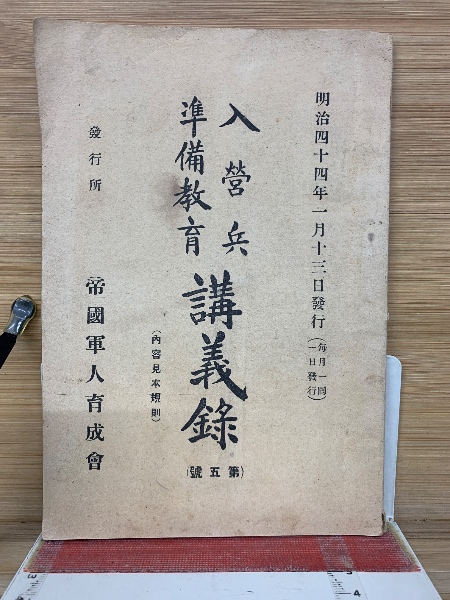 明治四十四年一月十三日發行（每月一回一日發行）
入營兵
準備教育
講義錄
（第五號）
（內容見本規則）
發行所
帝國軍人育成會
3
4